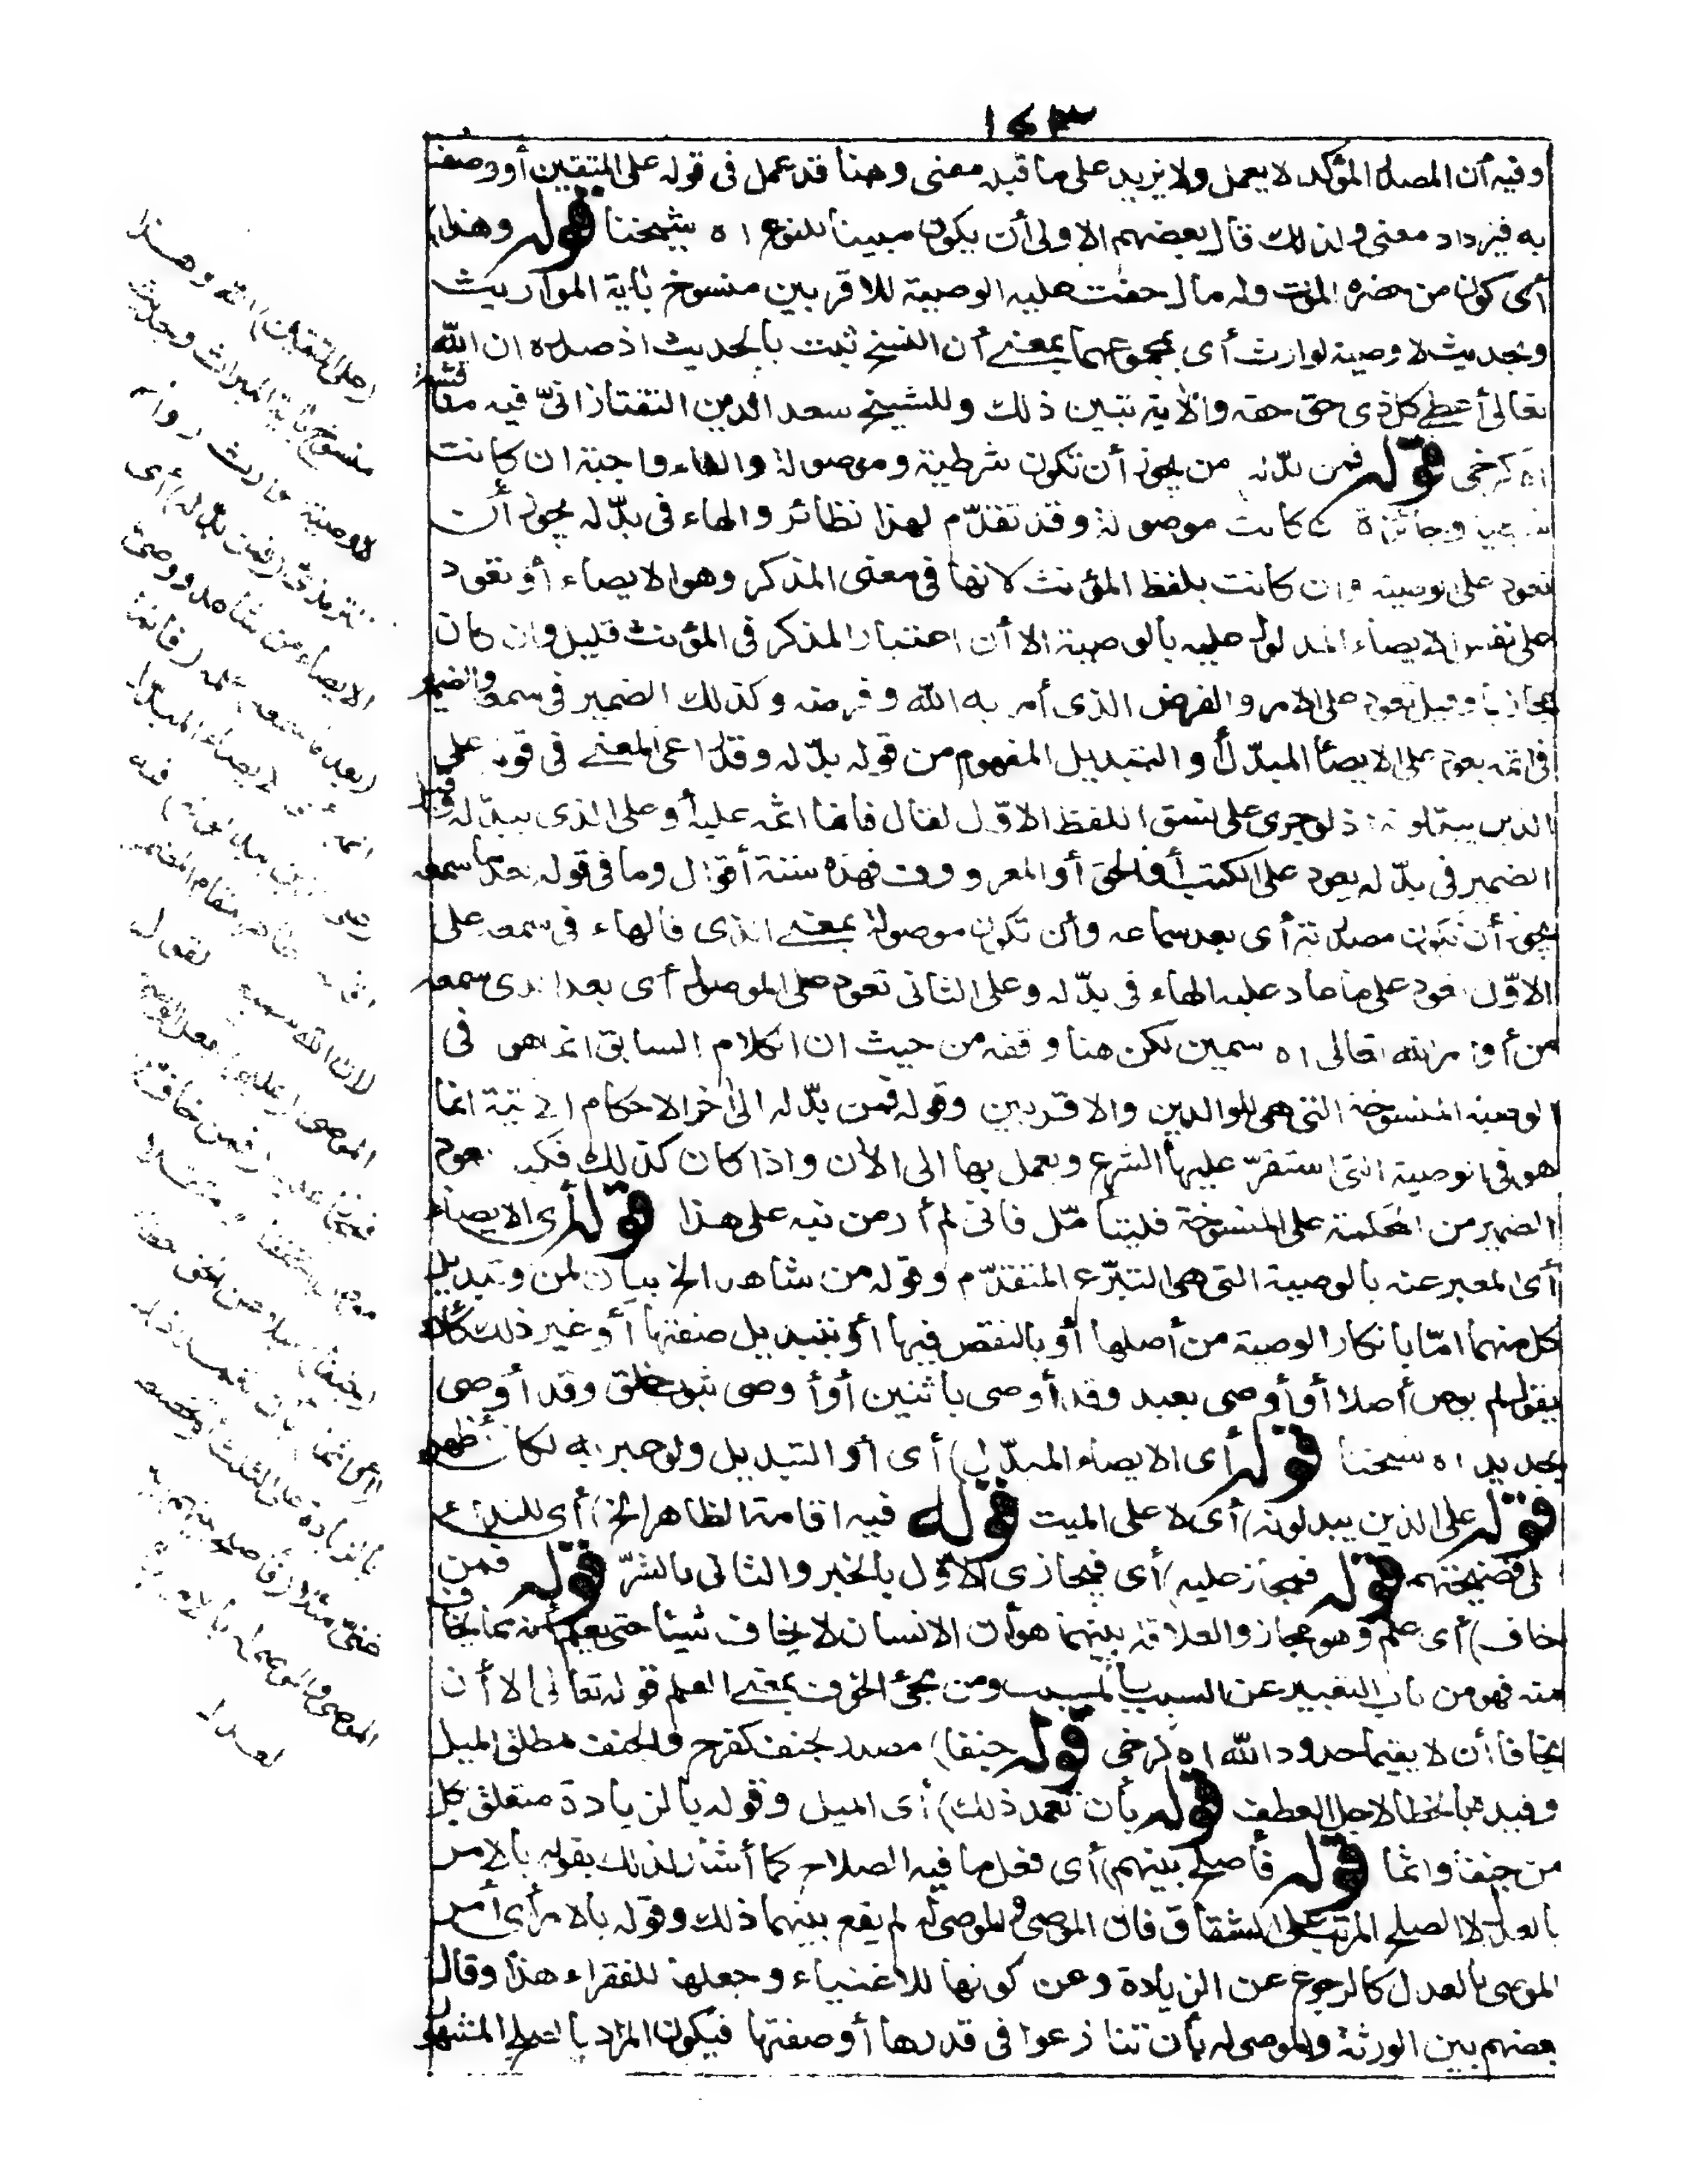 ١٤٣
وفيه أن المصدر المؤكد لا يعمل ولا يزيد على ما قبله معنى وهنا قد عمل فى قوله على المتقين أو وصف
به فيزداد معنى ولذلك قال بعضهم الاولى أن يكون مبينا للنوع اه شيخنا قوله وهذا)
أى كون من حضره الموت وله مال حقت عليه الوصية للاقربين منسوخ بآية المواريث
وبحديث لا وصية لوارث أى بمجموعهما بمعنى أن النسخ ثبت بالحديث اذ صدره ان الله
تعالى أعطى كل ذى حق حقه والآية تبين ذلك وللشيخ سعد الدين التفتازانىّ فيه مناقشة
اه كرخى قوله فمن بدّله من يجوز أن تكون شرطية وموصولة والفاء واجبة ان كانت
شرطية وجائزة ان كانت موصولة وقد تقدّم لهذا نظائر والهاء فى بدّله يجوز أن
تعود على الوصية وان كانت بلفظ المؤنث لانها فى معنى المذكر وهو الايصاء أو تعود
على نفس الايصاء المدلول عليه بالوصية الا أن اعتبار المذكر فى المؤنث قليل وان كان
مجازيا وقيل تعود على الامر والفرض الذى أمر به الله وفرضه وكذلك الضمير فى سمعه والضمير
فى اثمه يعود على الايصاء المبدّل أو التبديل المفهوم من قوله بدّله وقد راعى المعنى فى قوله على
الذين يبدّلونه اذ لو جرى على نسق اللفظ الاوّل لقال فانما اثمه عليه أو على الذى يبدّله وقيل
الضمير فى بدّله يعود على الكتب أو الحق أو المعروف فهذه ستة أقوال وما فى قوله بعد ما سمعه
يجوز أن تكون مصدرية أى بعد سماعه وأن تكون موصولة بمعنى الذى فالهاء فى سمعه على
الاوّل تعود على ما عاد عليه الهاء فى بدّله وعلى الثانى تعود على الموصول أى بعد الذى سمعه
من أوامر الله تعالى اه سمين لكن هنا وقفه من حيث ان الكلام السابق انما هو فى
الوصية المنسوخة التى هى للوالدين والاقربين وقوله فمن بدّله الى آخر الاحكام الآتية انما
هو فى الوصية التى استقرّ عليها الشرع ويعمل بها الى الآن واذا كان كذلك فكيف يعود
الضمير من المحكمة على المنسوخة فليتأمّل فانى لم أر من نبه على هذا قوله أى الايصاء
أى المعبر عنه بالوصية التى هى التبرّع المتقدّم وقوله من شاهد الخ بيان لمن وتبديل
كل منهما امّا بانكار الوصية من أصلها أو بالنقص فيها أو بتبديل صفتها أو غير ذلك كأن
يقول لم يوص أصلا أو أوصى بعبد وقد أوصى باثنين أو أوصى بثوب خلق وقد أوصى
بجديد اه شيخنا قوله أى الايصاء المبدّل) أى أو التبديل ولو عبر به لكان أظهر
قوله على الذين يبدلونه) أى لا على الميت قوله فيه اقامة الظاهر الخ) أى للنداء
على فضيحتهم قوله فمجاز عليه) أى فيجازى الاوّل بالخير والثانى بالشرّ قوله فمن
خاف) أى علم وهو مجاز والعلاقة بينهما هو أن الانسان لا يخاف شيئا حتى يعلم أنه مما يخاف
منه فهو من باب التعبير عن السبب بالمسبب ومن مجئ الخوف بمعنى العلم قوله تعالى الا أن
يخافا أن لا يقيما حدود الله اه كرخى قوله جنفا) مصدر لجنف كفرح والجنف مطلق الميل
وقيد بالخطا لاجل العطف قوله بأن تعمد ذلك) أى الميل وقوله بالزيادة متعلق بكل
من جنفا واثما قوله فأصلح بينهم) أى فعل ما فيه الصلاح كما أشار لذلك بقوله بالامر
بالعدل لا الصلح المرتب على الشقاق فان الموصى والموصى له لم يقع بينهما ذلك وقوله بالامر أى أمر
الموصى بالعدل كالرجوع عن الزيادة وعن كونها للاغنياء وجعلها للفقراء هذا وقال
بعضهم بين الورثة والموصى له بأن تنازعوا فى قدرها أو صفتها فيكون المراد بالصلح المشهور
(على المتقين) الله وهذا
منسوخ بآية الميراث وبحديث
لا وصية لوارث رواه
الترمذى (فمن بدّله) أى
الايصاء من شاهد ووصى
(بعد ما سمعه) علمه (فانما
اثمه) أى الايصاء المبدّل
على الذين يبدّلونه) فيه
اقامة الظاهر مقام المضمر
ان الله سميع لقول
الموصى (عليم) بفعل الوصى
فمجاز عليه (فمن خاف من
موص) مخففا ومثقلا
(جنفا) ميلا عن الحق خطأ
(أو اثما) بأن تعمد ذلك
بالزيادة على الثلث أو تخصيص
غنى مثلا (فأصلح بينهم) بين
الموصى والموصى له بالامر
بالعدل